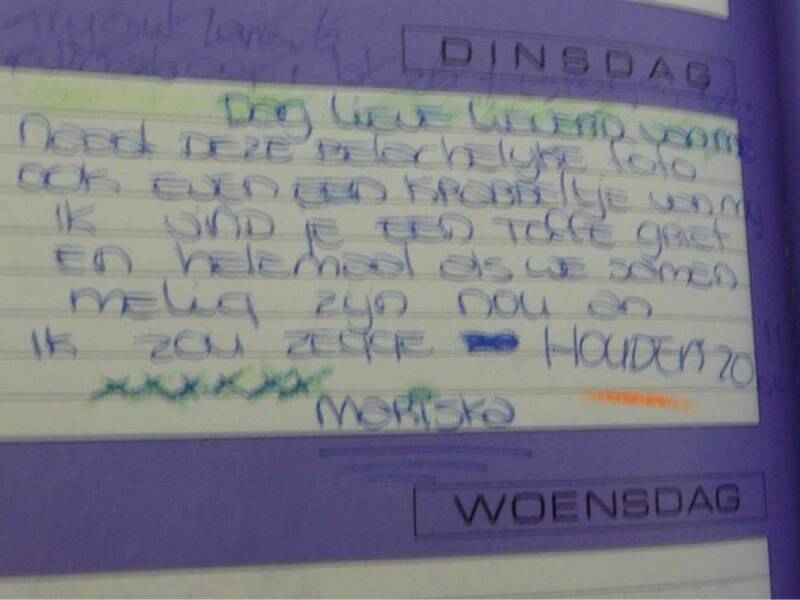 DINSDAG
Dag lieve lieverd van me
naast DEZE BElachelyke foto
ook EVEN EEN KRABBELtjE van my
IK VIND jE EEN TOFFE GRIET
EN helemaal als we samen
melig zyn nou en
IK ZOU ZEGGE HOUDEN ZO
xxxxxxx
MARISKA
WOENSDAG